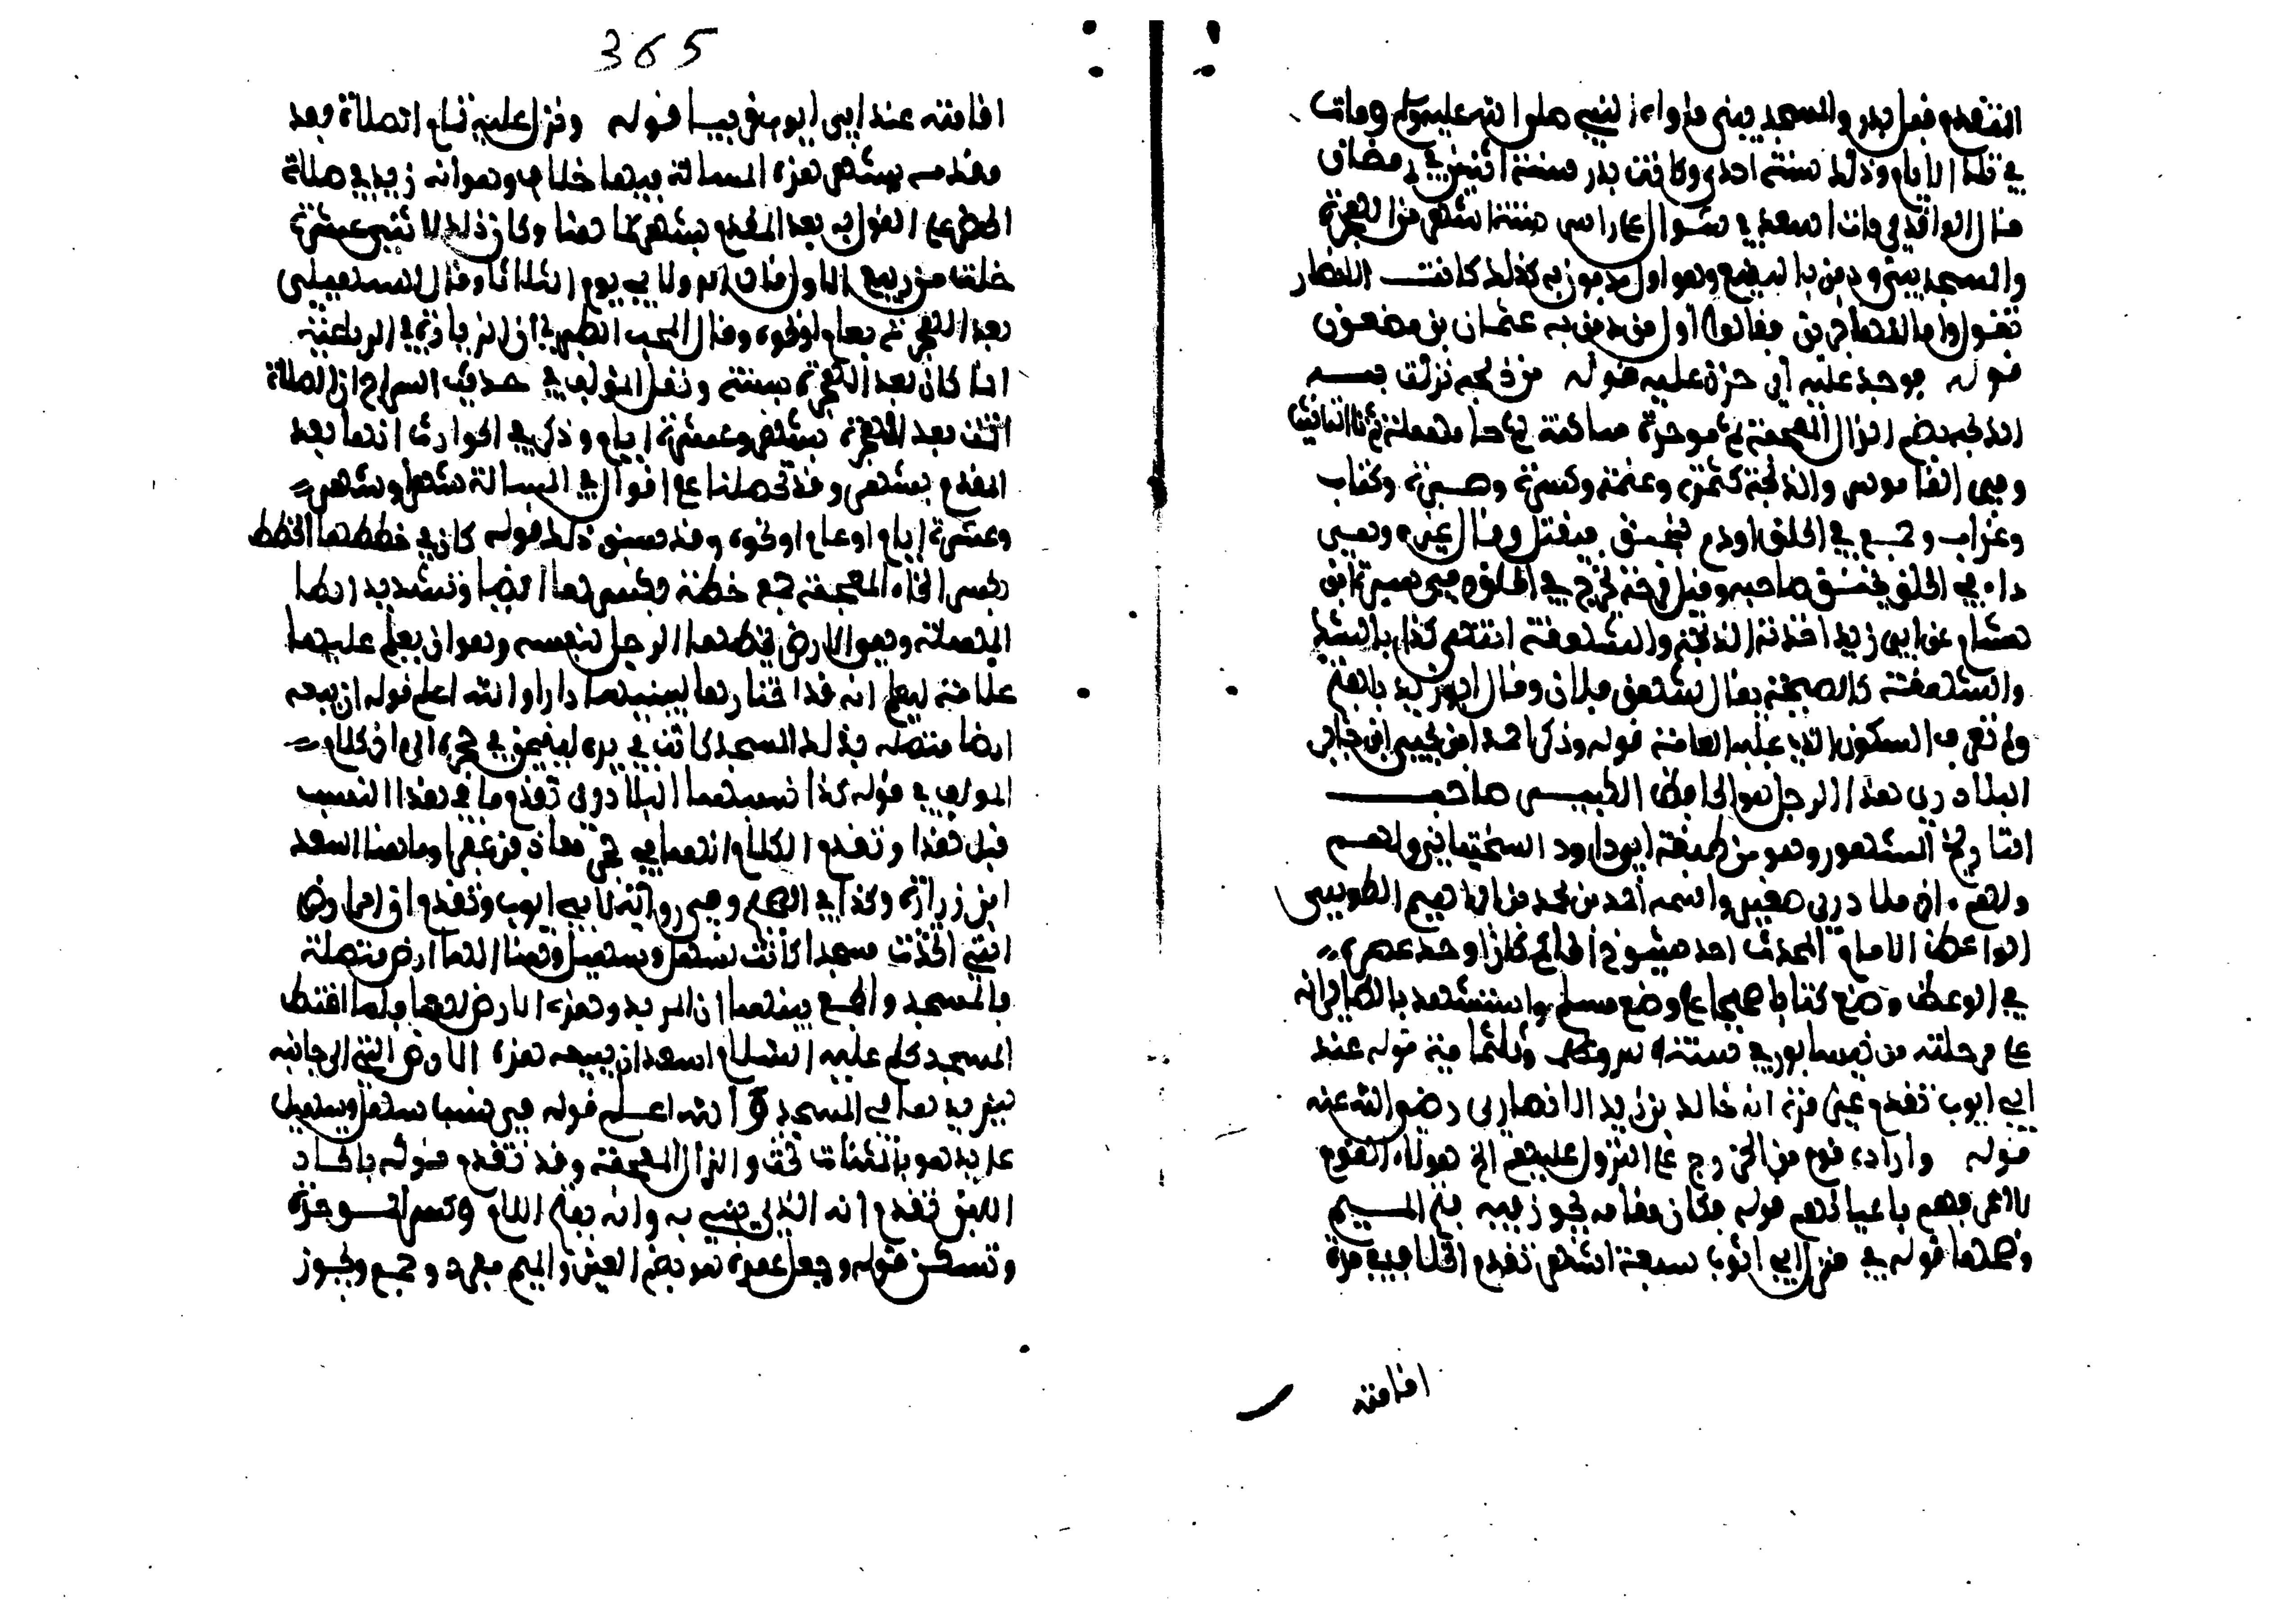 النقدم قبل بدر والمسجد يبنى فزواه النبي صلى الله عليه وسلم ومات
في تلك الايام وذلك سنة احدى وكانت بدر سنة اثنين في رمضان
قال الواقدي ومات اسعد في شوال على راس ستة اشهر من الهجرة
والمسجد يبنى ودفن بالبقيع وهو اول مدفون به كذلك كانت الانصار
تقول واما المهاجرين فقالوا اول من دفن به عثمان بن مضعون
قوله فوجد عليه اي حزن عليه قوله من ذبحة نزلت به
الذبحة بضم الذال المعجمة ثم موحدة ساكنة ثم حا مهملة ثم تا التانيث
وفي القاموس والذبحة كهمزة وعنبة وكسرة وصبرة وكتاب
وغراب وجع في الحلق او دم يخنق فيقتل وقال غيره وهي
داء في الحلق يخنق صاحبه وقيل قرحة تخرج في الحلق وفي سيرة ابن
هشام عن ابي زيد اخذته الذبحة والشهقة انتهى كذا بالشد
والشهقة كالصيحة يقال شهق فلان وقال ابو زيد بالفتح
ولم نعرف السكون الذي عليه العامة قوله وذكر احمد بن يحيى بن جابر
البلاذري هذا الرجل هو الحافظ الكبير صاحب
التاريخ المشهور وهو من طبقة ابو داود السختياني ولهم
ولهم ان بلاذري صغير واسمه احمد بن محمد بن ابراهيم الطوسي
الواعظ الامام المحدث احد شيوخ الحاكم كان اوحد عصره
في الوعظ وضع كتابا صحيحا على وضع مسلم واستشهد بالطابران
على مرحلة من نيسابور في سنة وثلثمائة قوله عند
ابي ايوب تقدم غير مرة انه خالد بن زيد الانصاري رضي الله عنه
قوله واراده قوم من الخزرج على النزول عليهم الخ هولاء القوم
لا اعرفهم باعيانهم قوله مكان مقامه يجوز فيه فتح الميم
وضمها قوله في منزل ابي ايوب سبعة اشهر تقدم الخلاف في مدة
اقامته
365
اقامته عند ابي ايوب قريبا قوله ونزل عليه تمام الصلاة بعد
مقدمه بشهر هذه المسالة فيها خلاف وهو انه زيد في صلاة
الحضر على القول به بعد المقدم بشهر كما هنا وكان ذلك لاثني عشرة
خلت من ربيع الاول قال الدولابي يوم الثلاثا وقال السهيلي
بعد الهجرة بعام او نحوه وقال المحب الطبري ان الزيادة في الرباعية
انما كان بعد الهجرة بسنة ونقل المؤلف في حديث السراج ان الصلاة
اتمت بعد الهجرة بشهر وعشرة ايام وذكر في الحوادث انها بعد
المقدم بشهر وقد تحصلنا على اقوال في المسالة شهر او شهر
وعشرة ايام او عام او نحوه وقد سبق ذلك قوله كان في خططها الخطط
بكسر الخاء المعجمة جمع خطة بكسرها ايضا وتشديد الطا
المهملة وهو الارض يخطها الرجل لنفسه وهو ان يعلم عليها
علامة ليعلم انه قد اختارها ليبنيها دارا والله اعلم قوله ان يبيعه
ارضا متصلة بذلك المسجد كانت في يده ليتيمين في حجره الى اخر كلام
المولف في قوله كذا نسبهما البلاذري تقدم ما في هذا النسب
قبل هذا وتقدم الكلام انهما في حجر معاذ بن عفرا وهاهنا اسعد
ابن زرارة وكذا في المهم وفي رواية لابي ايوب وتقدم ان المارض
التي اتخذت مسجدا كانت لسهل وسهيل وهنا انها ارض متصلة
بالمسجد والجمع بينهما ان المربد وهذه الارض لهما ولما اختط
المسجد كلم عليه السلام اسعد ان يبيعه هذه الارض التي الى جانبه
ليزيدها في المسجد والله اعلم قوله في نسب سهل وسهيل
عائد هو بالمثناة تحت والذال المعجمة وقد تقدم قوله باتخاذ
اللبن تقدم انه الذي يبنى به وانه بفتح اللام وكسر الموحدة
وتسكن قوله وجعل عمده هو بضم العين والميم مفرد وجمع ويجوز